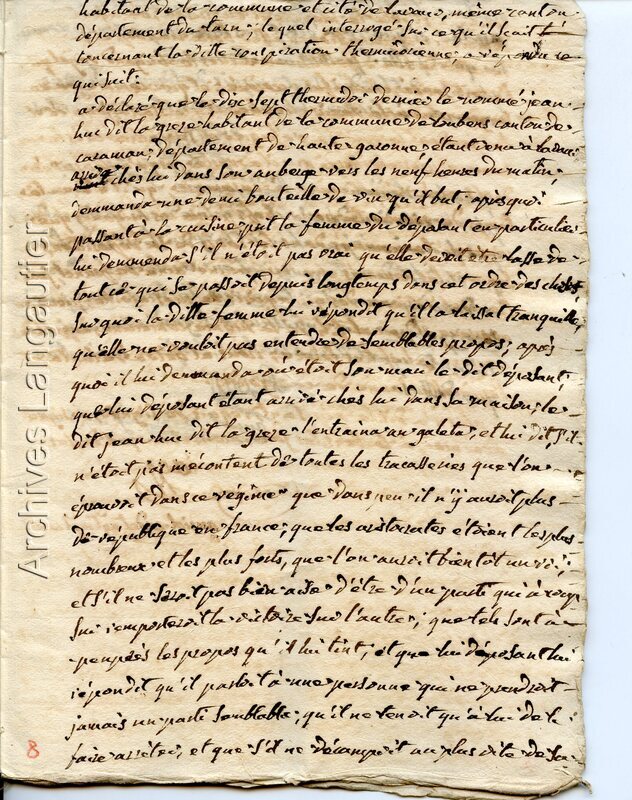 habitant de la commune et cité de Lavaur, même canton
département du tarn; lequel interrogé sur ce qu'il scait
concernant la ditte conspiration thermidorienne; a répondu ce
qui suit:
a déclaré que le dix sept thermidor dernier le nommé jean
hue dit la greze habitant de la commune de loubens canton de
caraman, département de haute garonne, étant venu à lavaur
chès lui dans son auberge vers les neuf heures du matin,
demmanda une demi bouteille de vin qu'il but, après quoi
passant à la cuisine prit la femme du déposant en particulier
lui demmenda s'il n'étoit pas vrai qu'elle devoit etre lasse de
tout ce qui se passoit depuis longtemps dans cet ordre des choses
sur quoi la ditte femme lui répondit qu'il la laissat tranquille,
qu'elle ne vouloit pas entendre de semblables propos; après
quoi il lui demmanda où étoit son mari le dit déposant,
que lui déposant étant arrivé chès lui dans sa maison, le
dit jean hue dit la greze l'entraina au galeta, et lui dit, s'il
n'étoit pas mécontent de toutes les tracasseries que l'on
éprouvoit dans ce régime, que dans peu il n'y auroit plus
de république en france, que les aristocrates etoient les plus
nombreux et les plus forts, que l'on auroit bientôt un roi,
et s'il ne seroit pas bien aise d'être d'un parti qui à coup
sur remporteroit la victoire sur l'autre; que tels sont à
peuprès les propos qu'il lui tint, et que lui déposant lui
répondit qu'il parloit à une personne qui ne prendroit
jamais un parti semblable, qu'il ne tenoit qu'à lui de le
faire arrêter, et que s'il ne décampoit au plus vite de sa
8
Archives Langautier